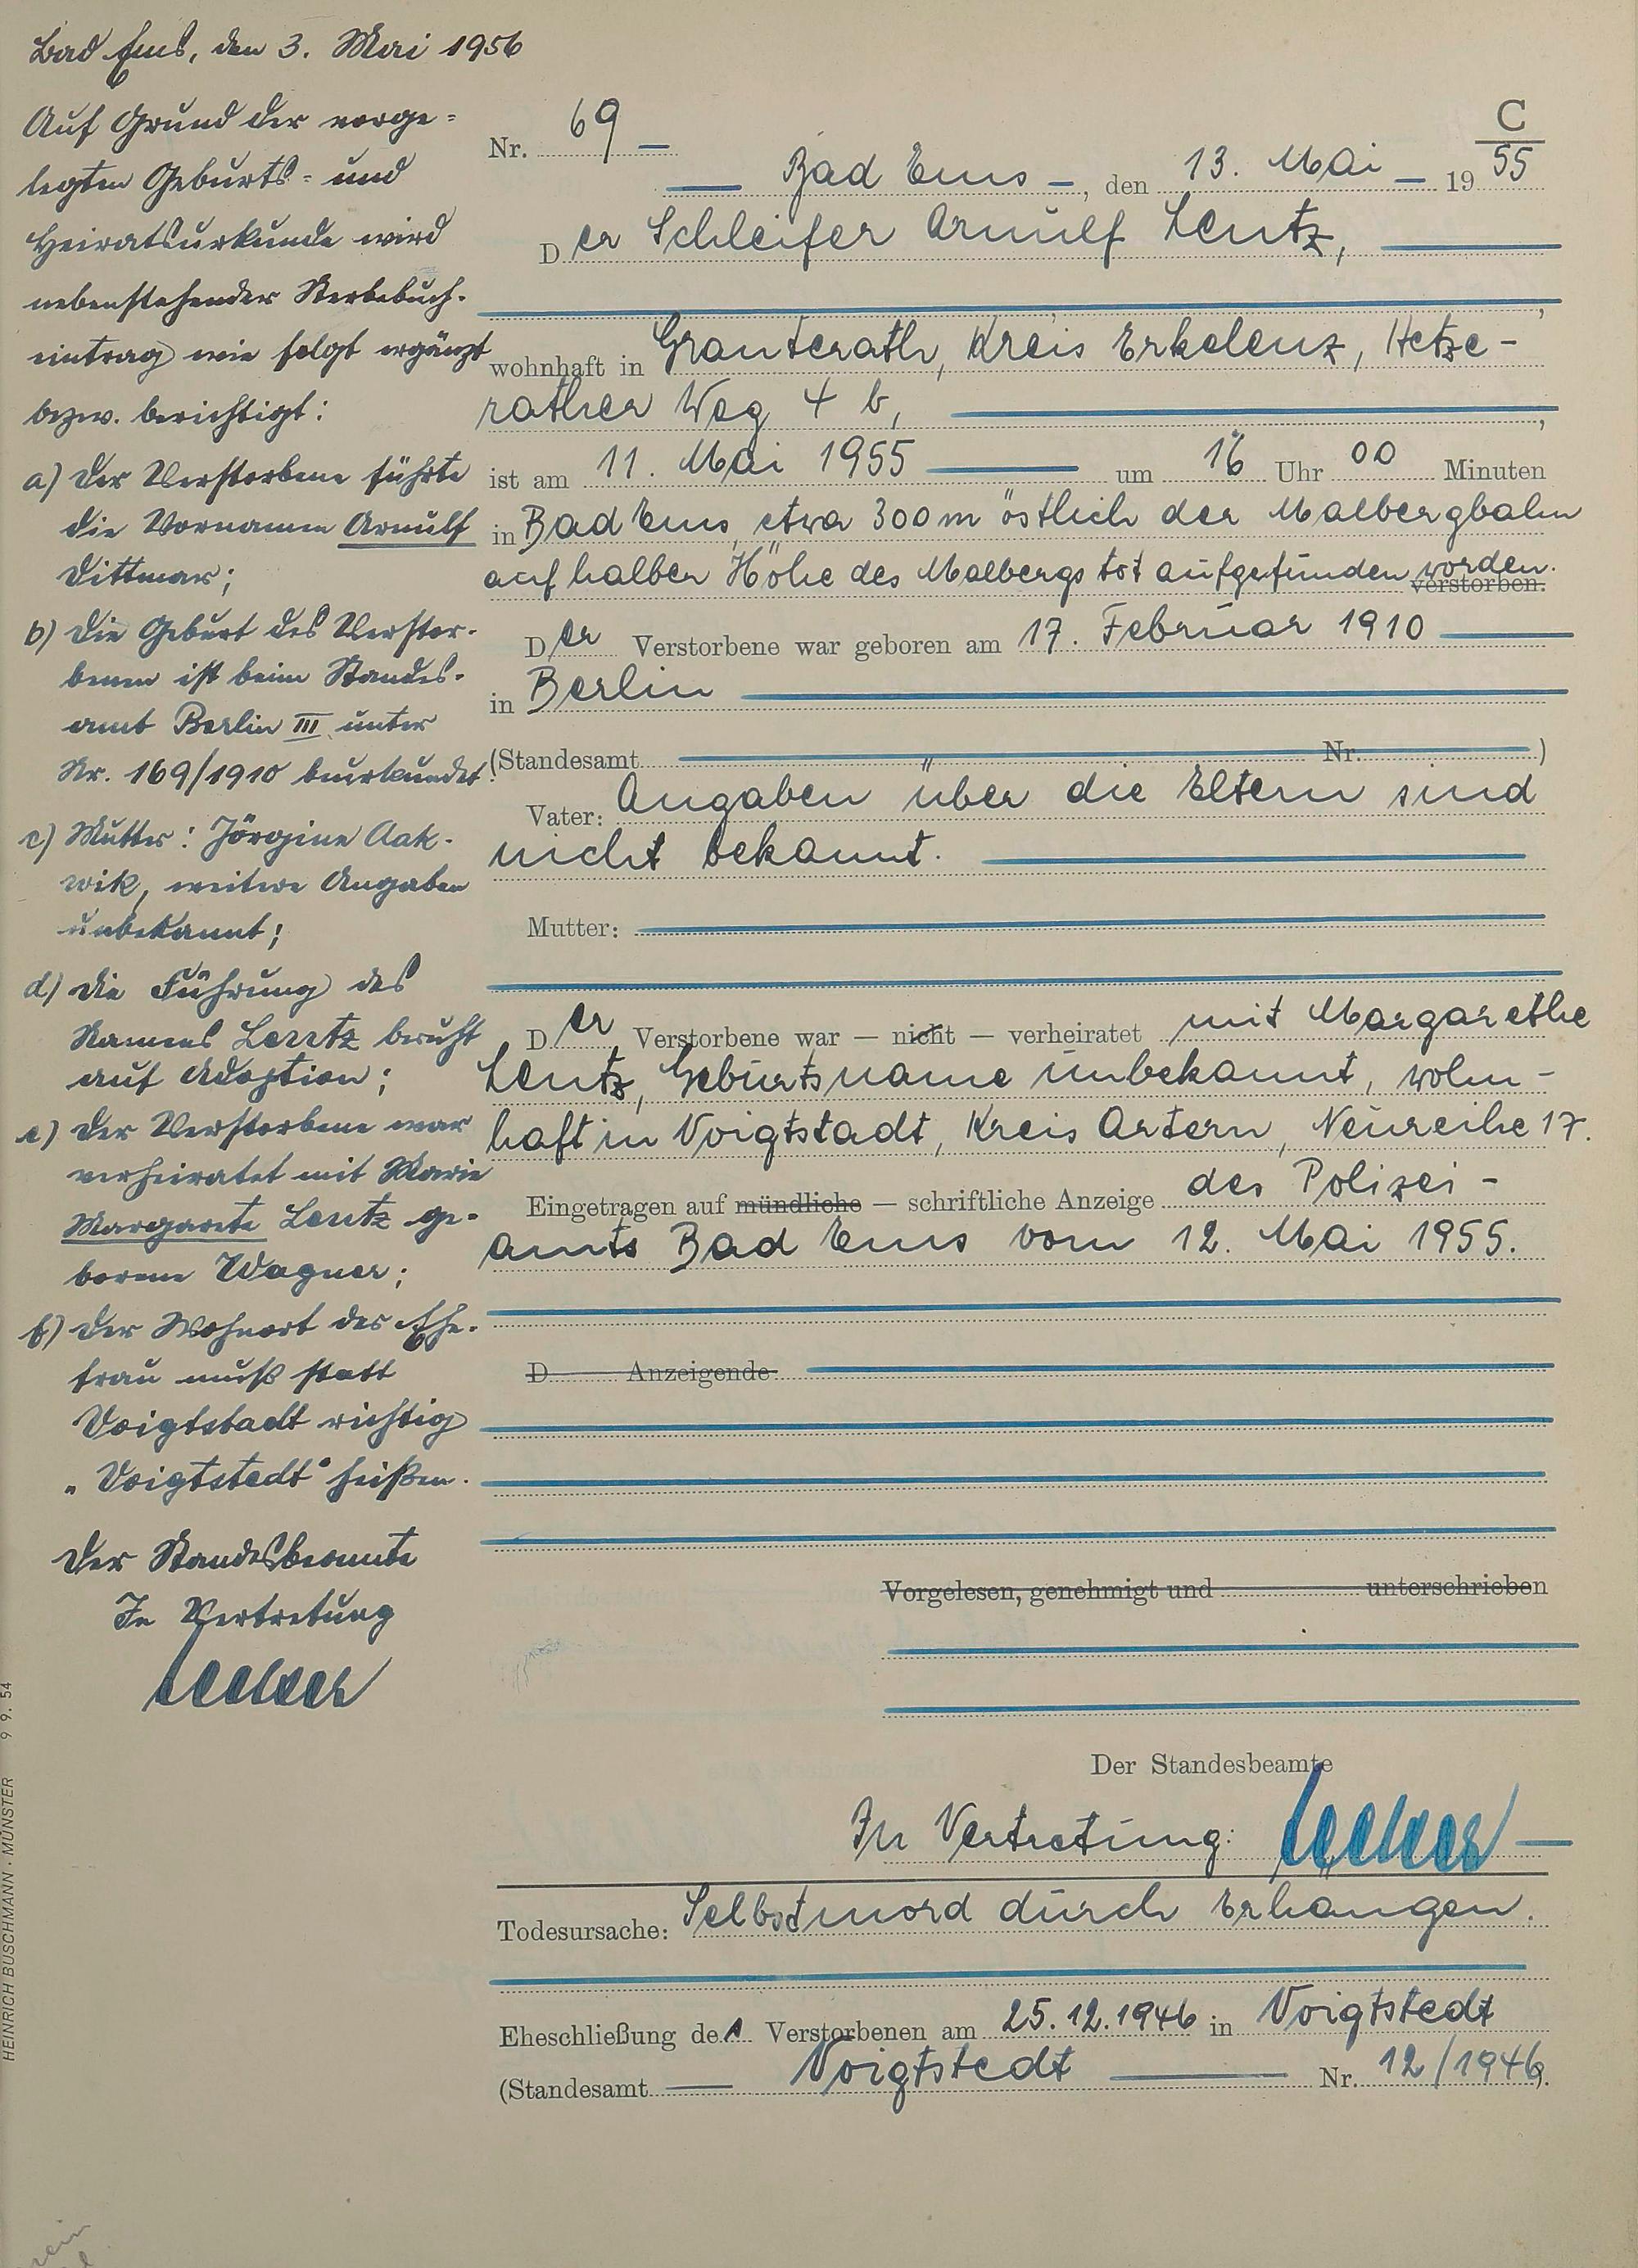 Bad Ems, den 3. Mai 1956
Auf Grund der vorge=
legten Geburts= und
Heiratsurkunde wird
nebenstehender Sterbebuch-
eintrag wie folgt ergänzt
bezw. berichtigt:
a) Der Verstorbene führte
die Vornamen Arnulf
Dittmar;
b) Die Geburt des Verstor-
benen ist beim Standes-
amt Berlin III unter
Nr. 169/1910 beurkundet.
c) Mutter: Jörgine Aak-
wik, weitere Angaben
unbekannt;
d) die Führung des
Namens Lentz beruht
auf Adoption;
e) Der Verstorbene war
verheiratet mit Marie
Margarete Lentz ge-
borene Wagner;
f) Der Wohnort der Ehe-
frau muß statt
Voigtstadt richtig
„Voigtstedt" heißen.
Der Standesbeamte
In Vertretung
C
Nr. 69 —
— Bad Ems —, den 13. Mai — 19 55
Der Schleifer Arnulf Lentz,
wohnhaft in Granterath, Kreis Erkelenz, Hetze-
rather Weg 4 b,
ist am 11. Mai 1955 um 16 Uhr 00 Minuten
in Bad Ems, etwa 300 m östlich der Malbergbahn
auf halber Höhe des Malbergs tot aufgefunden worden.
verstorben.
Der Verstorbene war geboren am 17. Februar 1910
in Berlin
(Standesamt Nr. )
Vater: Angaben über die Eltern sind
nicht bekannt.
Mutter:
Der Verstorbene war — nicht — verheiratet mit Margarethe
Lentz, Geburtsname unbekannt, wohn-
haft in Voigtstadt, Kreis Artern, Neureihe 17.
Eingetragen auf mündliche — schriftliche Anzeige des Polizei-
amts Bad Ems vom 12. Mai 1955.
D Anzeigende
Vorgelesen, genehmigt und unterschrieben
Der Standesbeamte
In Vertretung:
Todesursache: Selbstmord durch Erhängen.
Eheschließung des Verstorbenen am 25.12.1946 in Voigtstedt
(Standesamt — Voigtstedt — Nr. 12/1946).
HEINRICH BUSCHMANN · MÜNSTER 9 9. 54